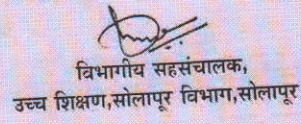 विभागीय सहसंचालक,
उच्च शिक्षण,सोलापूर विभाग,सोलापूर